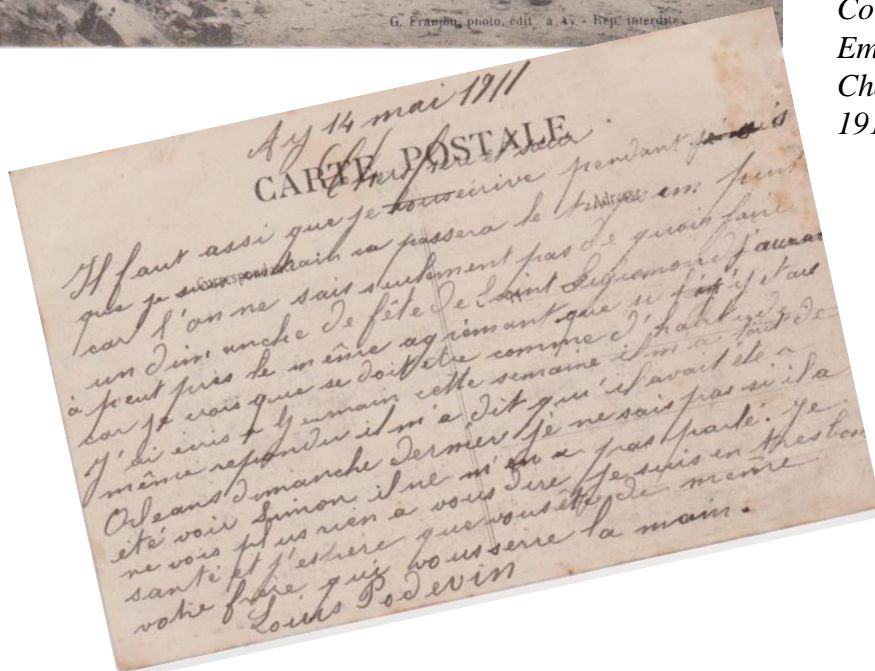 G. Franjou, photo. édit. à Ay - Rep. interdite
Co
Em
Cha
191
Ay 14 mai 1911
CARTE POSTALE
Chers frère et sœur
Correspondance
Adresse
Il faut assi que je vous écrive pendant
que je suis en train sa passera le temps un peu
car l'on ne sais seulement pas de quois faire
un dimanche de fête de Saint Sigismond j'aurai
à peut près le même agrémant que si j'y étais
car je crois que se doit être comme d'habitude
J'ai écris à Germain cette semaine il m'a tout de
même repondu il m'a dit qu'il avait été a
Orleans dimanche dernier je ne sais pas si il a
été voir Simon il ne m'en a pas parlé. Je
ne vois plus rien a vous dire je suis en tres bonne
santé et j'espère que vous ête de même
votre frère qui vous serre la main.
Louis Podevin